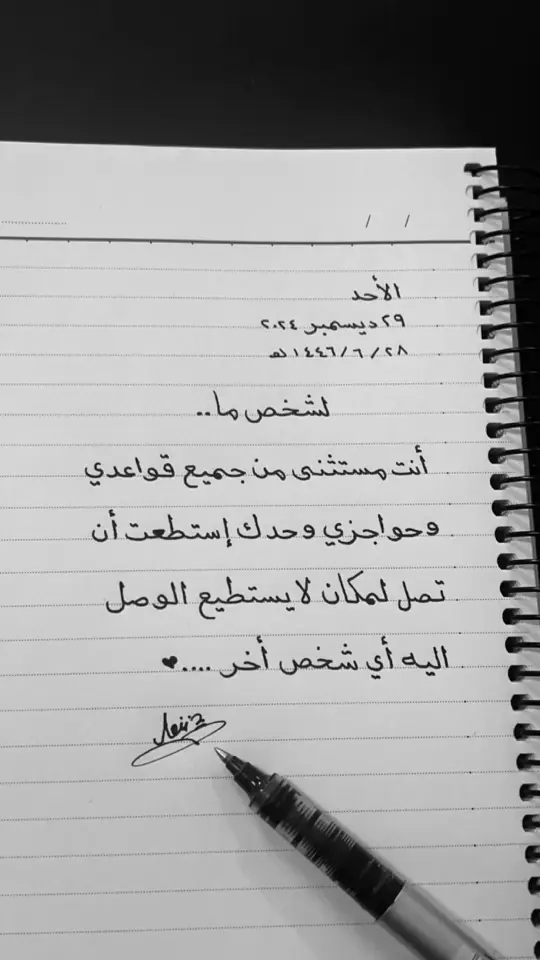 / /
الأحد
٢٩ ديسمبر ٢٠٢٤
٢٨ /٦ /١٤٤٦هـ
لشخص ما..
أنت مستثنى من جميع قواعدي
وحواجزي وحدك إستطعت أن
تصل لمكان لا يستطيع الوصل
اليه أي شخص أخر ....♥